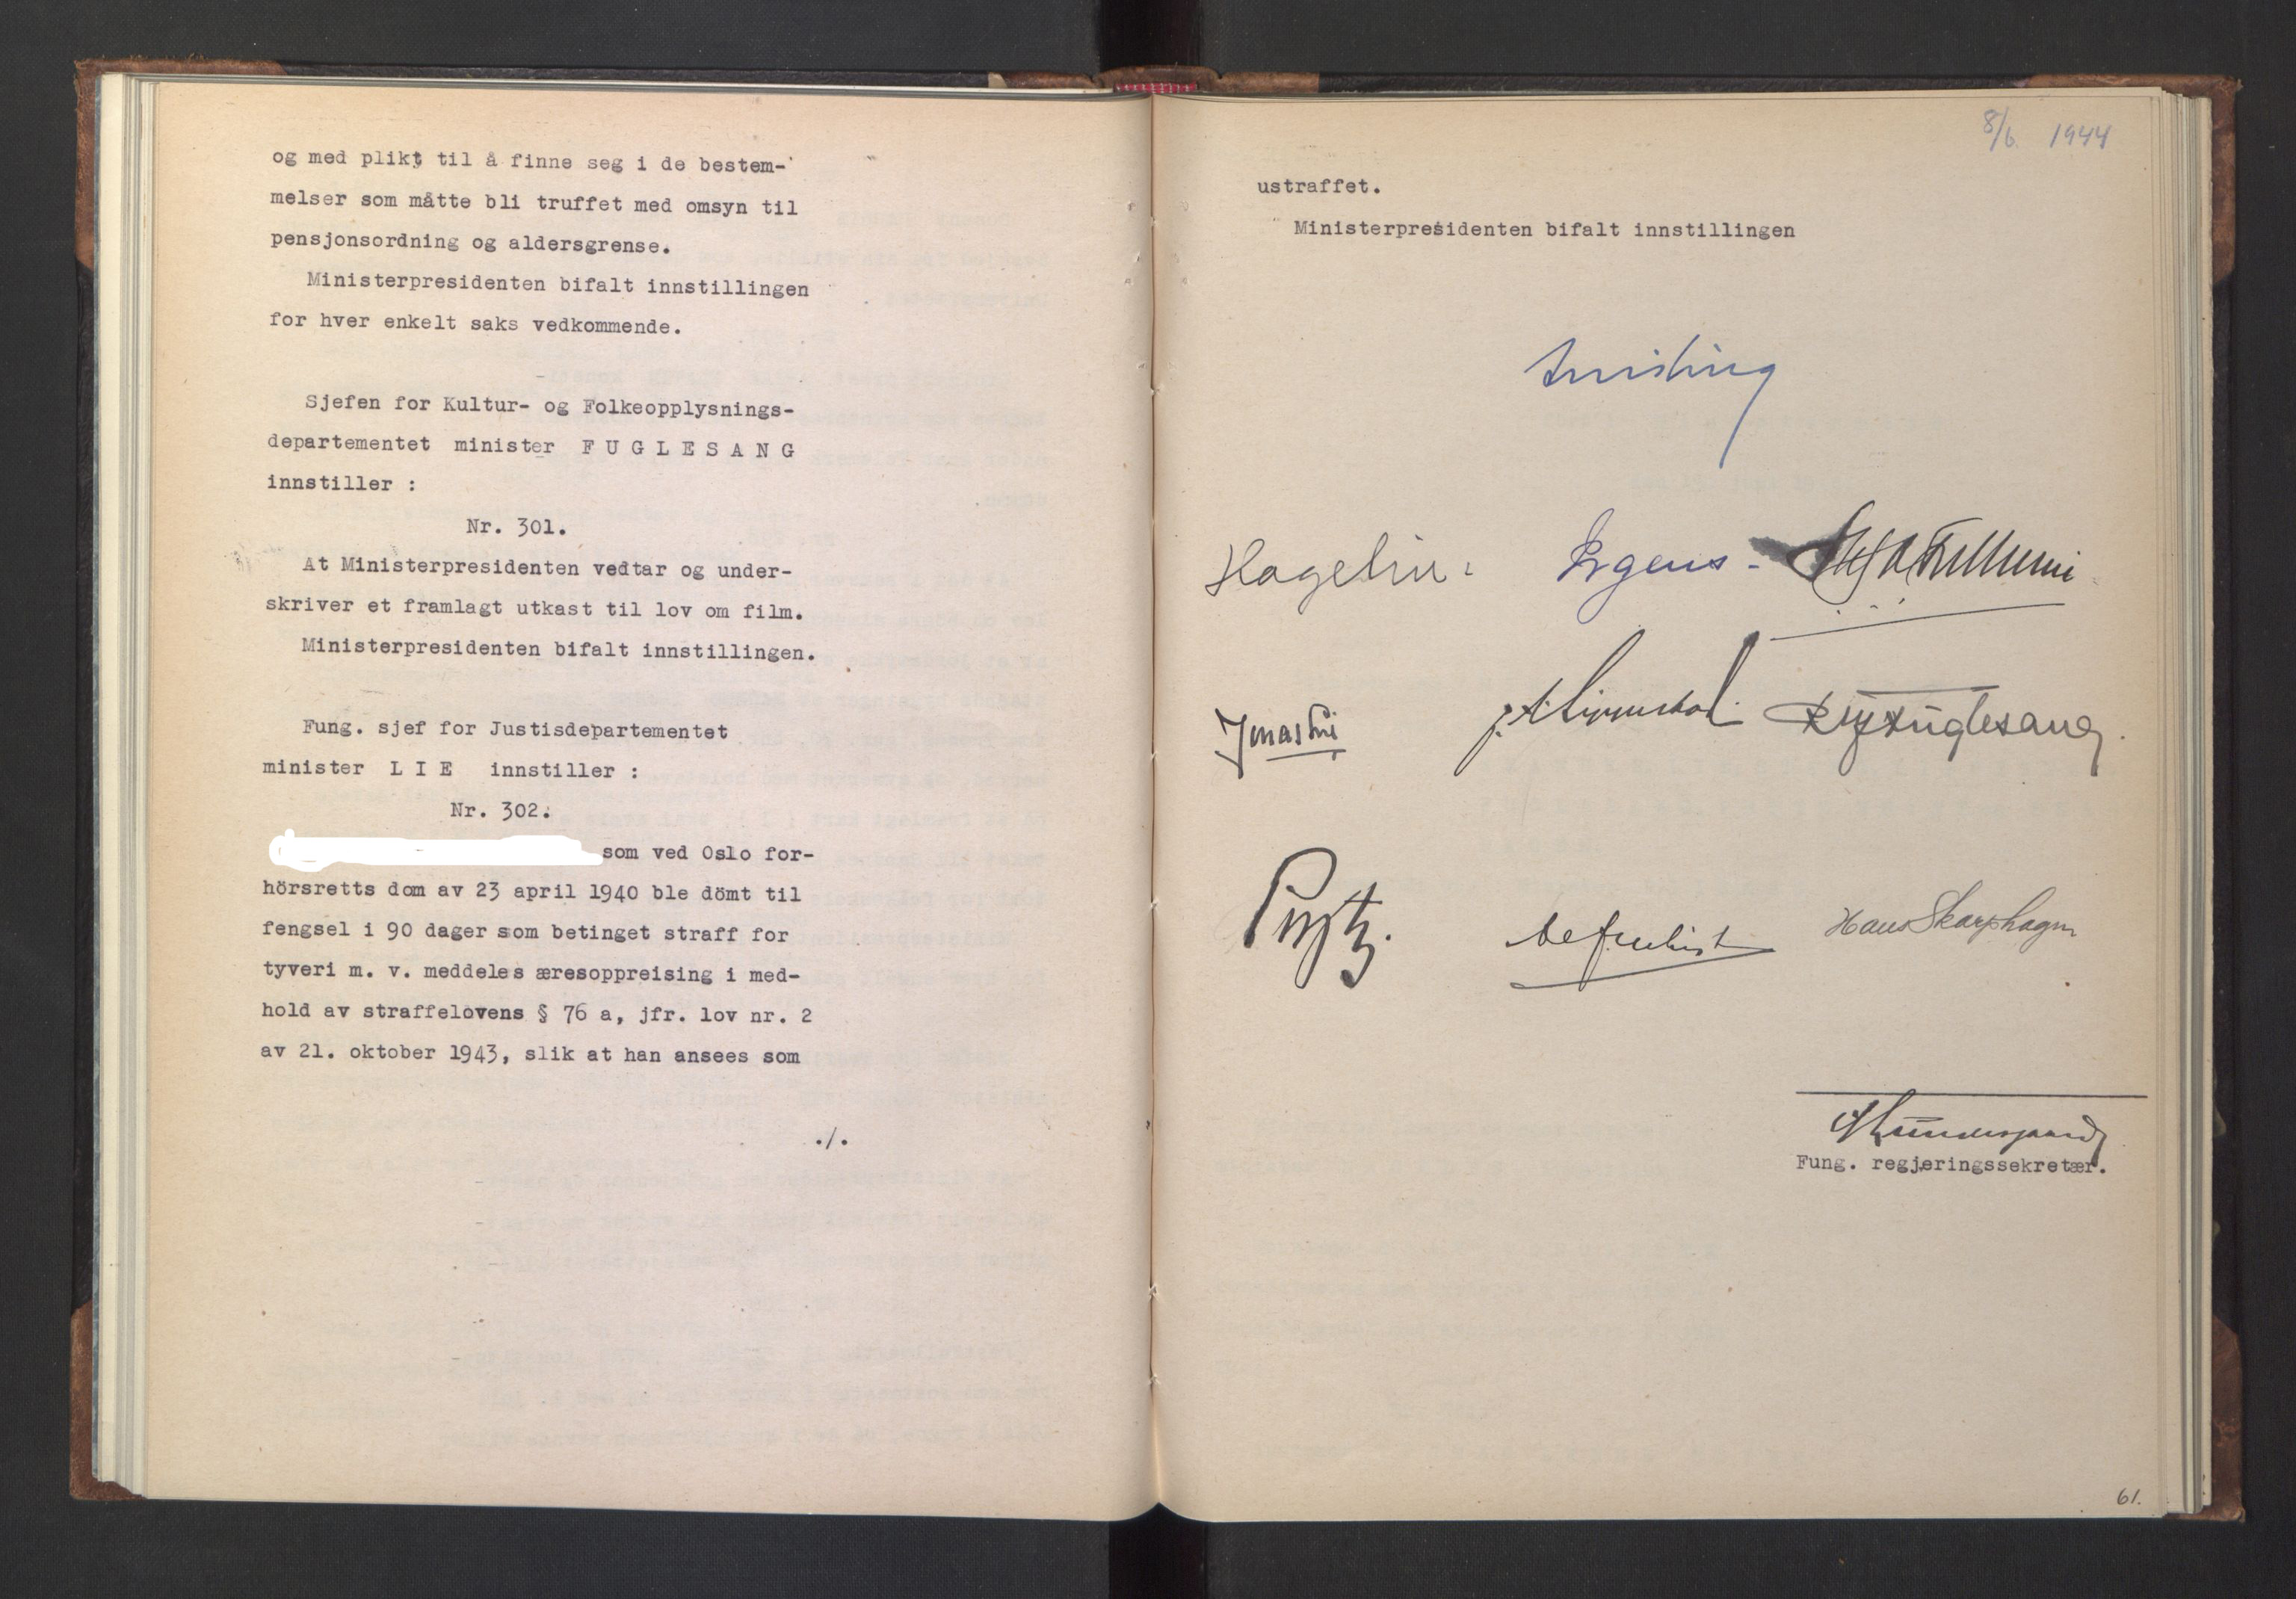 og med plikt til å finne seg i de bestem-
melser som måtte bli truffet med omsyn til
pensjonsordning og aldersgrense.
Ministerpresidenten bifalt innstillingen
for hver enkelt saks vedkommende.
Sjefen for Kultur- og Folkeopplysnings-
departementet minister F U G L E S A N G
innstiller :
Nr. 301.
At Ministerpresidenten vedtar og under-
skriver et framlagt utkast til lov om film.
Ministerpresidenten bifalt innstillingen.
Fung. sjef for Justisdepartementet
minister L I E innstiller :
Nr. 302.
som ved Oslo for-
hörsretts dom av 23 april 1940 ble dömt til
fengsel i 90 dager som betinget straff for
tyveri m. v. meddeles æresoppreising i med-
hold av straffelovens § 76 a, jfr. lov nr. 2
av 21. oktober 1943, slik at han ansees som
./.
8/6 1944
ustraffet.
Ministerpresidenten bifalt innstillingen
Quisling
Hagelin. Irgens -
Jonas Lie Fuglesang.
Hans Skarphagen
Fung. regjeringssekretær.
61.